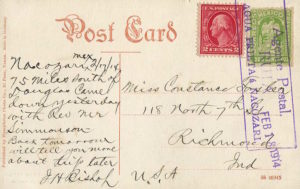 Post Card
Nacozari Mex
2/17/14
75 miles south of
Douglas Came
down yesterday
with Rev Mr
Simmonson
Back tomorrow
will tell you more
about trip later
J H Bishop
Miss Constance
118 North 7th
Richmond
Ind
U.S.A
2 CENTS 2
Agente Postal.
FEB 1914
AGUA PRIETA NACOZARI